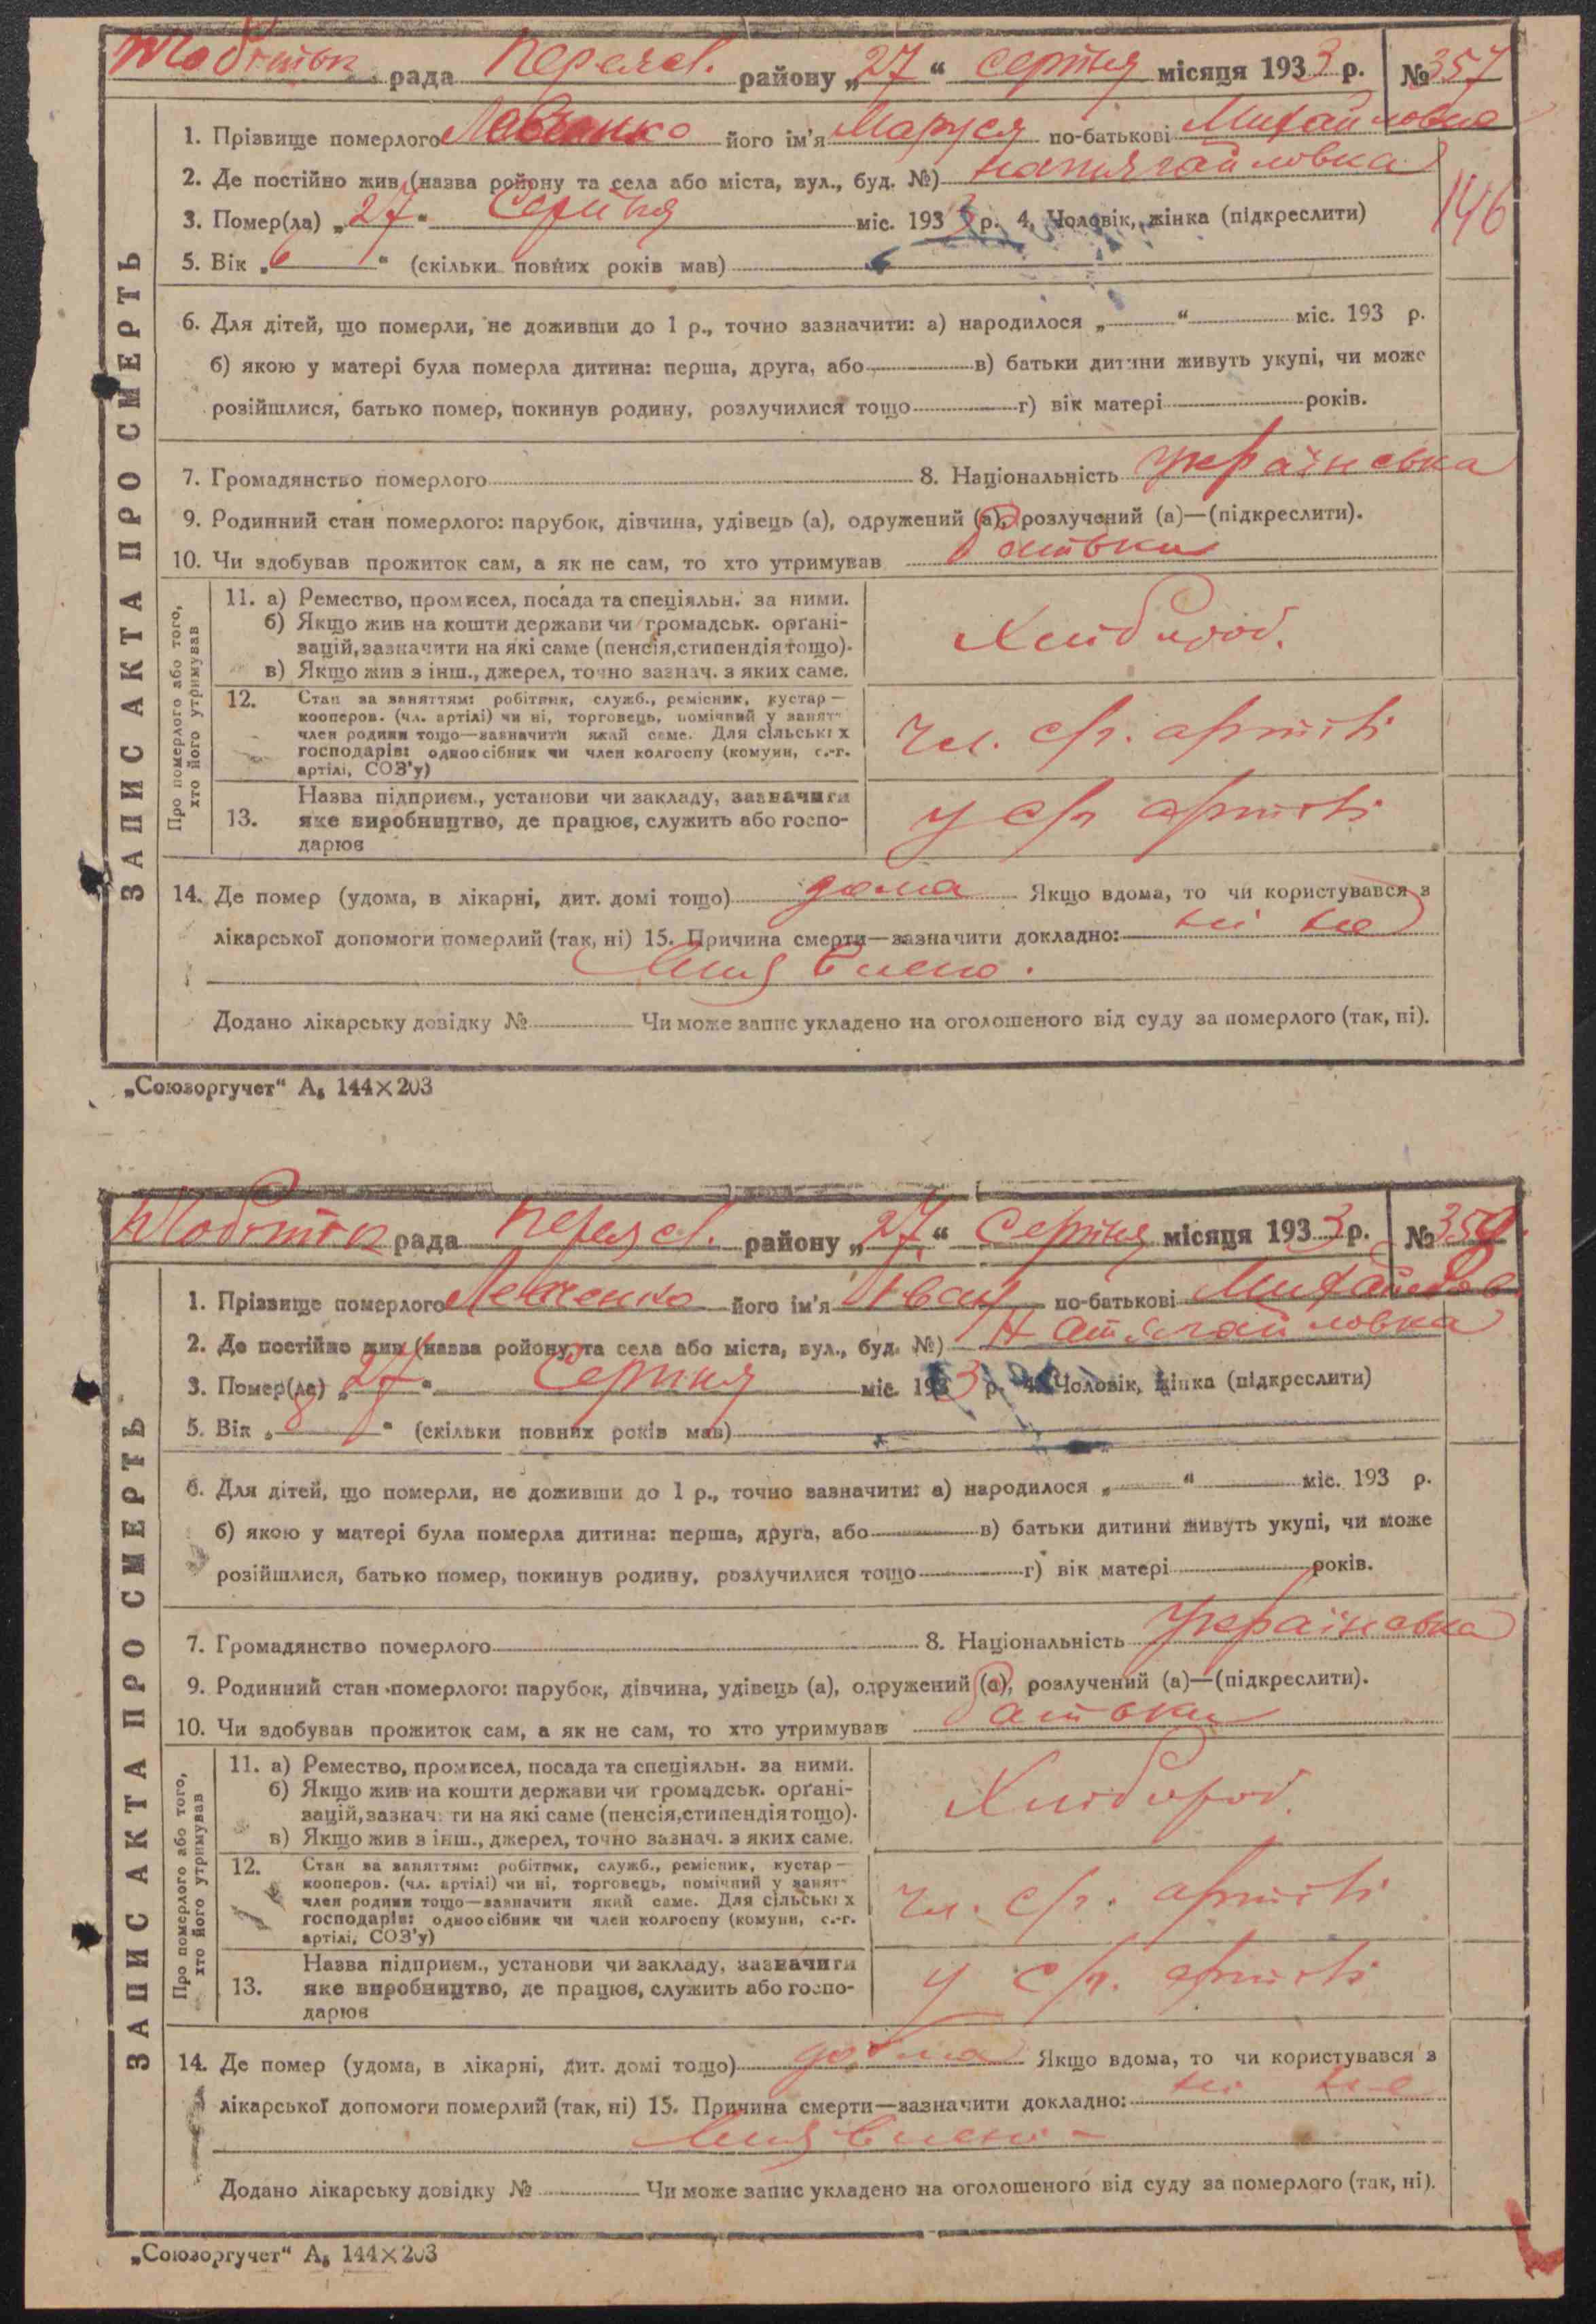 рада Переяс. району „27“ серпня місяця 1933 р. № 357
1. Прізвище померлого Левченко його ім'я Маруся по-батькові Михайловна
2. Де постійно жив (назва ройону та села або міста, вул., буд. №)
146
3. Помер(ла) „27“ Серпня міс. 1933 р. 4. Чоловік, жінка (підкреслити)
5. Вік „6“ (скільки повних років мав)
6. Для дітей, що померли, не доживши до 1 р., точно зазначити: а) народилося „ “ міс. 193 р.
б) якою у матері була померла дитина: перша, друга, або в) батьки дитини живуть укупі, чи може
розійшлися, батько помер, покинув родину, розлучилися тощо г) вік матері років.
7. Громадянство померлого 8. Національність українська
9. Родинний стан померлого: парубок, дівчина, удівець (а), одружений (а), розлучений (а)—(підкреслити).
10. Чи здобував прожиток сам, а як не сам, то хто утримував батьки
ЗАПИС АКТА ПРО СМЕРТЬ
Про померлого або того, хто його утримував
11. а) Ремество, промисел, посада та спеціяльн. за ними.
б) Якщо жив на кошти держави чи громадськ. орґані-
зацій, зазначити на які саме (пенсія, стипендія тощо).
в) Якщо жив з інш., джерел, точно зазнач. з яких саме.
Хлібороб.
12. Стан за заняттям: робітник, служб., ремісник, кустар—
кооперов. (чл. артілі) чи ні, торговець, помічний у занят-
член родини тощо—зазначити який саме. Для сільських
господарів: одноосібник чи член колгоспу (комуни, с.-г.
артілі, СОЗ'у)
чл. с/г. артілі
13. Назва підприєм., установи чи закладу, зазначити
яке виробництво, де працює, служить або госпо-
дарює
у с/г артілі
14. Де помер (удома, в лікарні, дит. домі тощо) дома Якщо вдома, то чи користувався з
лікарської допомоги померлий (так, ні) 15. Причина смерти—зазначити докладно: ні не
Додано лікарську довідку № Чи може запис укладено на оголошеного від суду за померлого (так, ні).
„Союзоргучет“ А₅ 144×203
рада Переяс. району „27“ Серпня місяця 1933 р. №
1. Прізвище померлого Левченко його ім'я Іван по-батькові
2. Де постійно жив (назва ройону та села або міста, вул., буд. №)
3. Помер(ла) „27“ Серпня міс. 1933 р. 4. Чоловік, жінка (підкреслити)
5. Вік „8“ (скільки повних років мав)
6. Для дітей, що померли, не доживши до 1 р., точно зазначити: а) народилося „ “ міс. 193 р.
б) якою у матері була померла дитина: перша, друга, або в) батьки дитини живуть укупі, чи може
розійшлися, батько помер, покинув родину, розлучилися тощо г) вік матері років.
7. Громадянство померлого 8. Національність українська
9. Родинний стан померлого: парубок, дівчина, удівець (а), одружений (а), розлучений (а)—(підкреслити).
10. Чи здобував прожиток сам, а як не сам, то хто утримував батьки
ЗАПИС АКТА ПРО СМЕРТЬ
Про померлого або того, хто його утримував
11. а) Ремество, промисел, посада та спеціяльн. за ними.
б) Якщо жив на кошти держави чи громадськ. орґані-
зацій, зазначити на які саме (пенсія, стипендія тощо).
в) Якщо жив з інш., джерел, точно зазнач. з яких саме.
Хлібороб.
12. Стан за заняттям: робітник, служб., ремісник, кустар—
кооперов. (чл. артілі) чи ні, торговець, помічний у занят-
член родини тощо—зазначити який саме. Для сільських
господарів: одноосібник чи член колгоспу (комуни, с.-г.
артілі, СОЗ'у)
чл. с/г. артілі
13. Назва підприєм., установи чи закладу, зазначити
яке виробництво, де працює, служить або госпо-
дарює
у с/г. артілі
14. Де помер (удома, в лікарні, дит. домі тощо) дома Якщо вдома, то чи користувався з
лікарської допомоги померлий (так, ні) 15. Причина смерти—зазначити докладно: ні не
Додано лікарську довідку № Чи може запис укладено на оголошеного від суду за померлого (так, ні).
„Союзоргучет“ А₅ 144×203